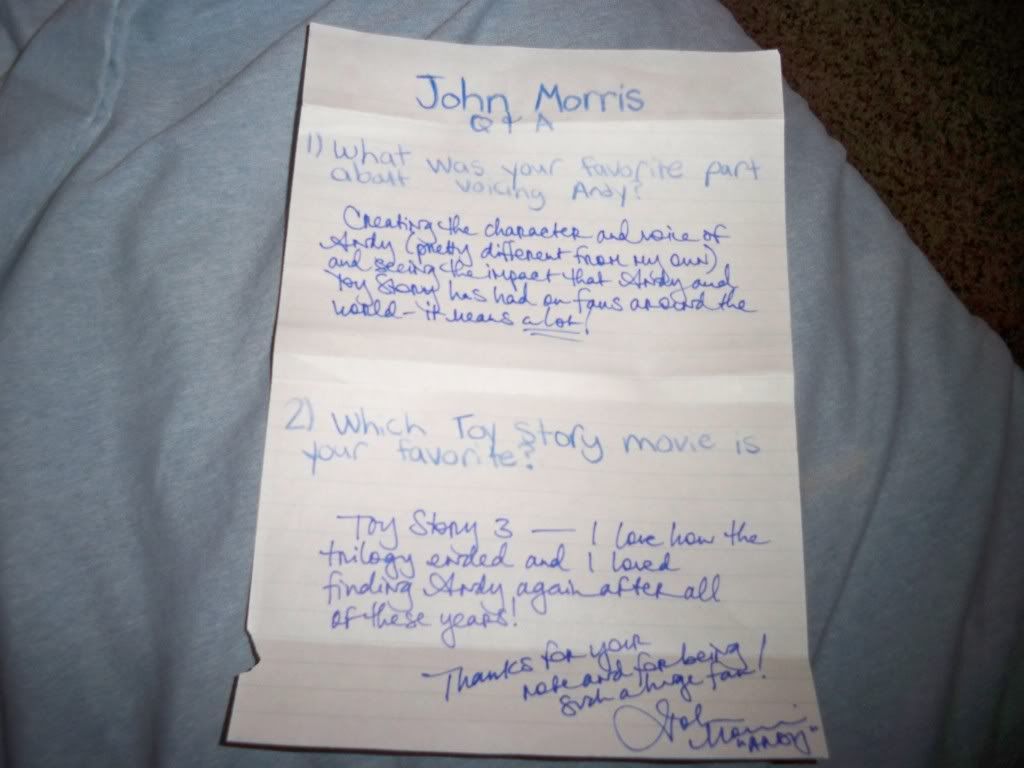 John Morris
Q & A
1) What was your favorite part
about voicing Andy?
Creating the character and voice of
Andy (pretty different from my own)
and seeing the impact that Andy and
Toy Story has had on fans around the
world - it means a lot!
2) Which Toy Story movie is
your favorite?
Toy Story 3 — I love how the
trilogy ended and I loved
finding Andy again after all
of these years!
Thanks for your
note and for being
such a huge fan!
John Morris
"ANDY"